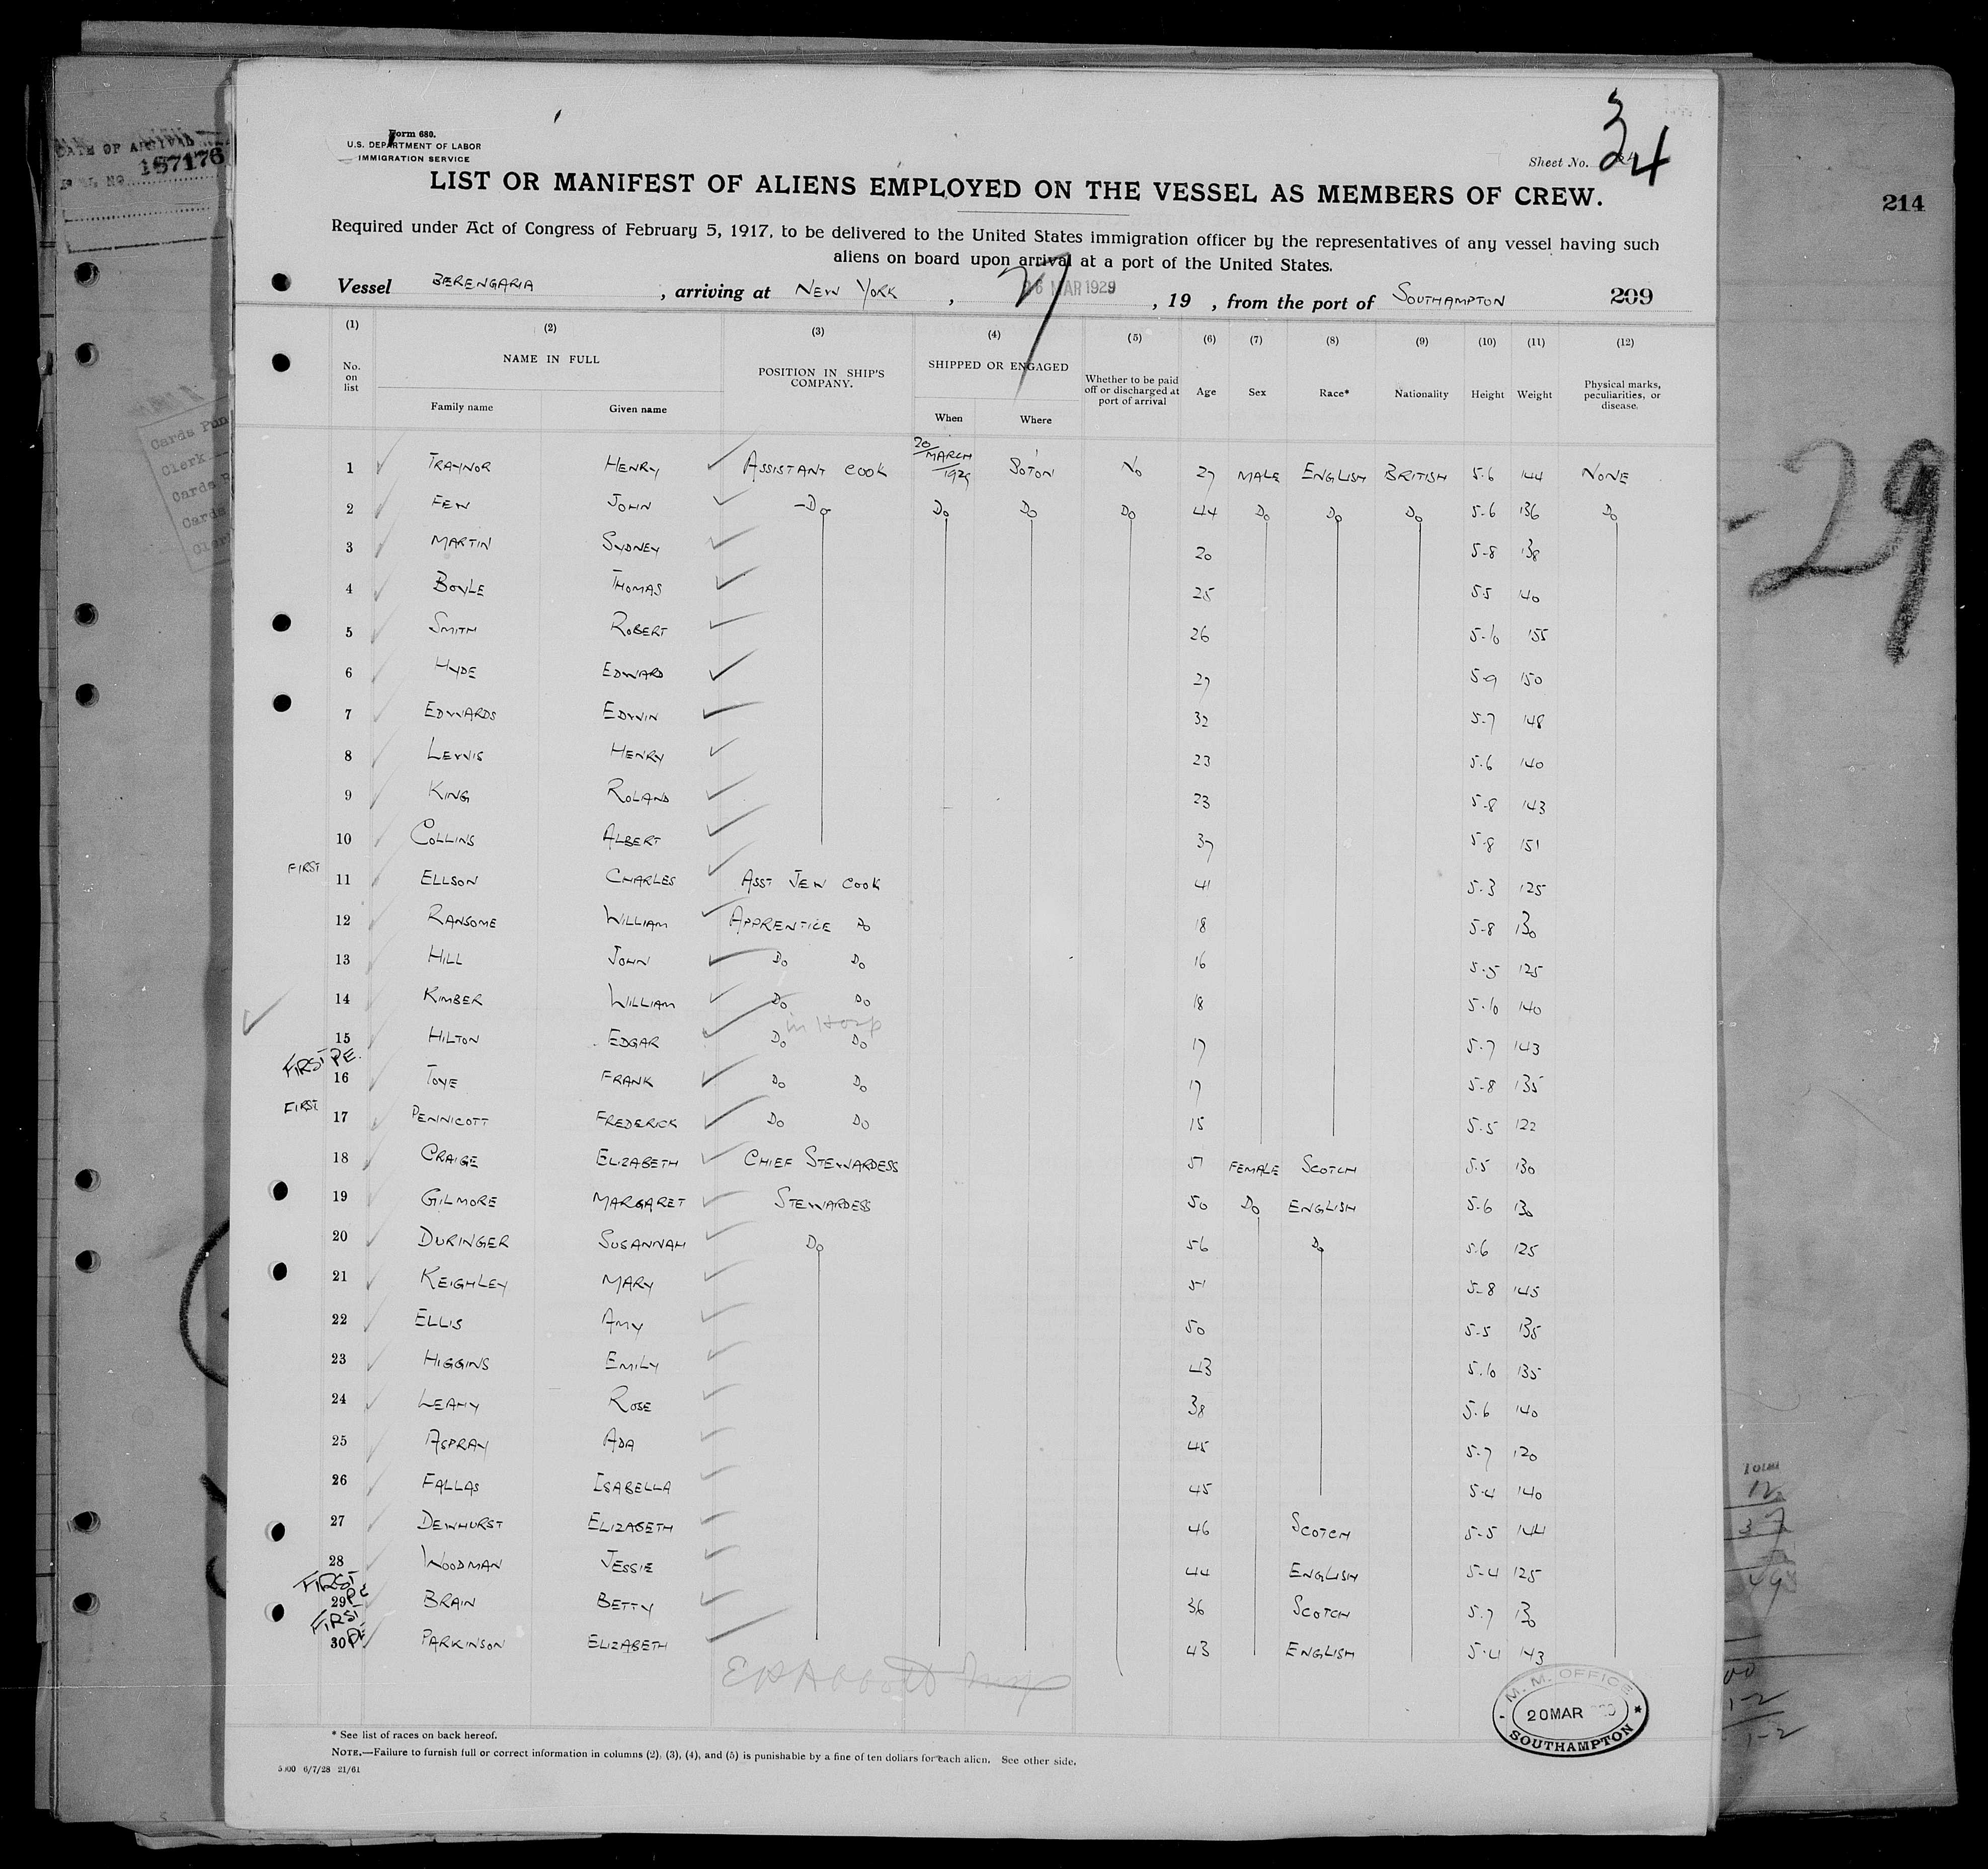 DATE OF ARRIVAL
187176
Form 680.
U.S. DEPARTMENT OF LABOR
IMMIGRATION SERVICE
Sheet No.
34
LIST OR MANIFEST OF ALIENS EMPLOYED ON THE VESSEL AS MEMBERS OF CREW.
214
Required under Act of Congress of February 5, 1917, to be delivered to the United States immigration officer by the representatives of any vessel having such
aliens on board upon arrival at a port of the United States.
Vessel BERENGARIA, arriving at NEW YORK, 26 MAR 1929 27, 19 , from the port of SOUTHAMPTON 209
(1) (2) (3) (4) (5) (6) (7) (8) (9) (10) (11) (12)
No. on list NAME IN FULL POSITION IN SHIP'S COMPANY. SHIPPED OR ENGAGED Whether to be paid off or discharged at port of arrival Age Sex Race* Nationality Height Weight Physical marks, peculiarities, or disease.
Family name Given name When Where
1 TRAYNOR HENRY ASSISTANT COOK 20 MARCH 1929 SOTON NO 27 MALE ENGLISH BRITISH 5-6 144 NONE
2 FEW JOHN -DO- DO DO DO 44 DO DO DO 5-6 136 DO
3 MARTIN SYDNEY 20 5-8 138
4 BOYLE THOMAS 25 5-5 140
5 SMITH ROBERT 26 5-10 155
6 HYDE EDWARD 27 5-9 150
7 EDWARDS EDWIN 32 5-7 148
8 LEWIS HENRY 23 5-6 140
9 KING ROLAND 23 5-8 143
10 COLLINS ALBERT 37 5-8 151
FIRST 11 ELLSON CHARLES ASST JEW COOK 41 5-3 125
12 RANSOME WILLIAM APPRENTICE DO 18 5-8 130
13 HILL JOHN DO DO 16 5-5 125
14 KIMBER WILLIAM DO DO 18 5-10 140
in Hosp
15 HILTON EDGAR DO DO 17 5-7 143
FIRST P.E. 16 TOYE FRANK DO DO 17 5-8 135
FIRST 17 PENNICOTT FREDERICK DO DO 15 5-5 122
18 CRAIGE ELIZABETH CHIEF STEWARDESS 51 FEMALE SCOTCH 5-5 130
19 GILMORE MARGARET STEWARDESS 50 DO ENGLISH 5-6 130
20 DURINGER SUSANNAH DO 56 DO 5-6 125
21 KEIGHLEY MARY 51 5-8 145
22 ELLIS AMY 50 5-5 135
23 HIGGINS EMILY 43 5-10 135
24 LEAHY ROSE 38 5-6 140
25 ASPRAY ADA 45 5-7 120
26 FALLAS ISABELLA 45 5-4 140
27 DEWHURST ELIZABETH 46 SCOTCH 5-5 144
28 WOODMAN JESSIE 44 ENGLISH 5-4 125
FIRST PE 29 BRAIN BETTY 36 SCOTCH 5-7 130
FIRST PE 30 PARKINSON ELIZABETH 43 ENGLISH 5-4 143
M. M. OFFICE
20 MAR
SOUTHAMPTON
* See list of races on back hereof.
NOTE.—Failure to furnish full or correct information in columns (2), (3), (4), and (5) is punishable by a fine of ten dollars for each alien. See other side.
5000 6/7/28 21/61
-29